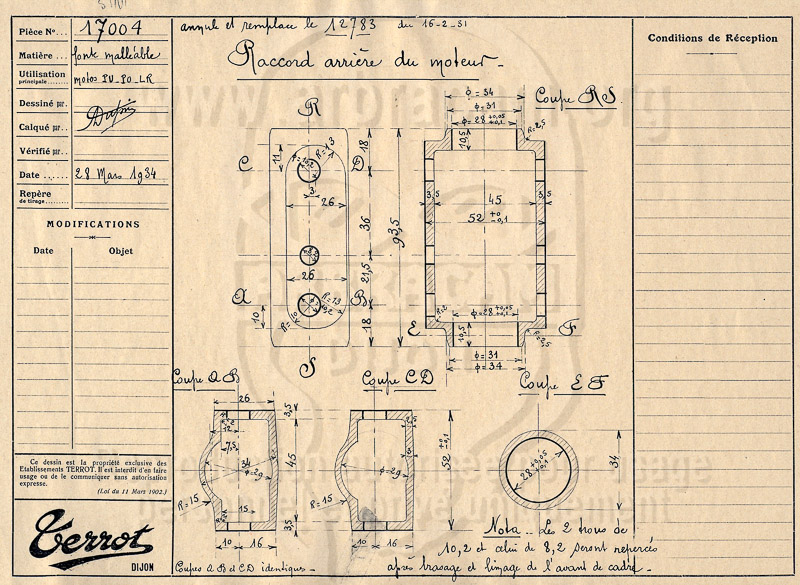 Pièce Nº... 17004
annule et remplace le 12783 du 16-2-31
Matière... fonte malléable
Utilisation principale... motos PU_PO_LR
Dessiné par.
Calqué par...
Vérifié par...
Date...... 28 Mars 1934
Repère de tirage...
MODIFICATIONS
Date Objet
Raccord arrière du moteur_
Conditions de Réception
R
C D
A B
S
11
R=13
3
26
26
R=13
10
18
36
21,5
18
93,5
Coupe RS.
φ=34
φ=31
φ=28 +0,05 +0,1
10,5
R=2,5
3,5 45 3,5
52 +0 -0,1
R=2
φ=28 +0,05
10,5
R=2,5
E F
φ=31
φ=34
Coupe AB
26
3,5
12,2
7,5
34
φ=29
45
R=15
15
3,5
10 16
Coupe CD
φ=29
R=15
52 +0 -0,1
10 16
Coupe EF
28 +0,05 +0,1
34
Coupes AB et CD identiques_
Nota _ Les 2 trous de
10,2 et celui de 8,2 seront repercés
après brasage et limage de l'avant de cadre_
Ce dessin est la propriété exclusive des
Etablissements TERROT. Il est interdit d'en faire
usage ou de le communiquer sans autorisation
expresse.
(Loi du 11 Mars 1902.)
Terrot
DIJON